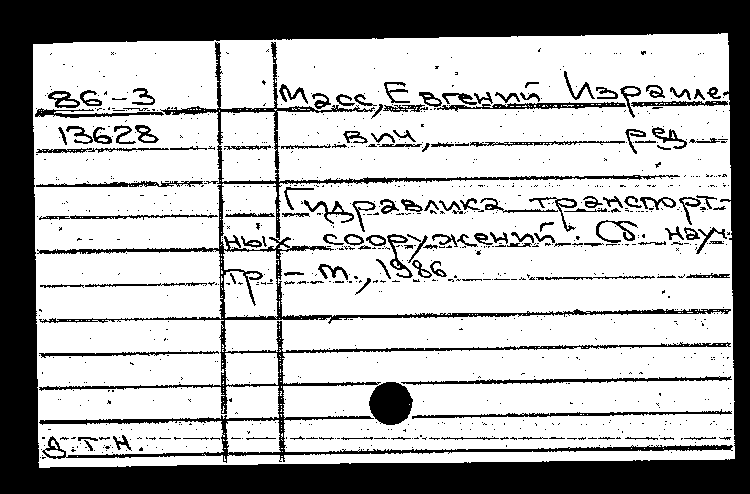 86-3 Масс, Евгений Израиле-
13628 вич, ред.
Гидравлика транспорт-
ных сооружений. Сб. науч.
тр. – М., 1986.
д.т.н.